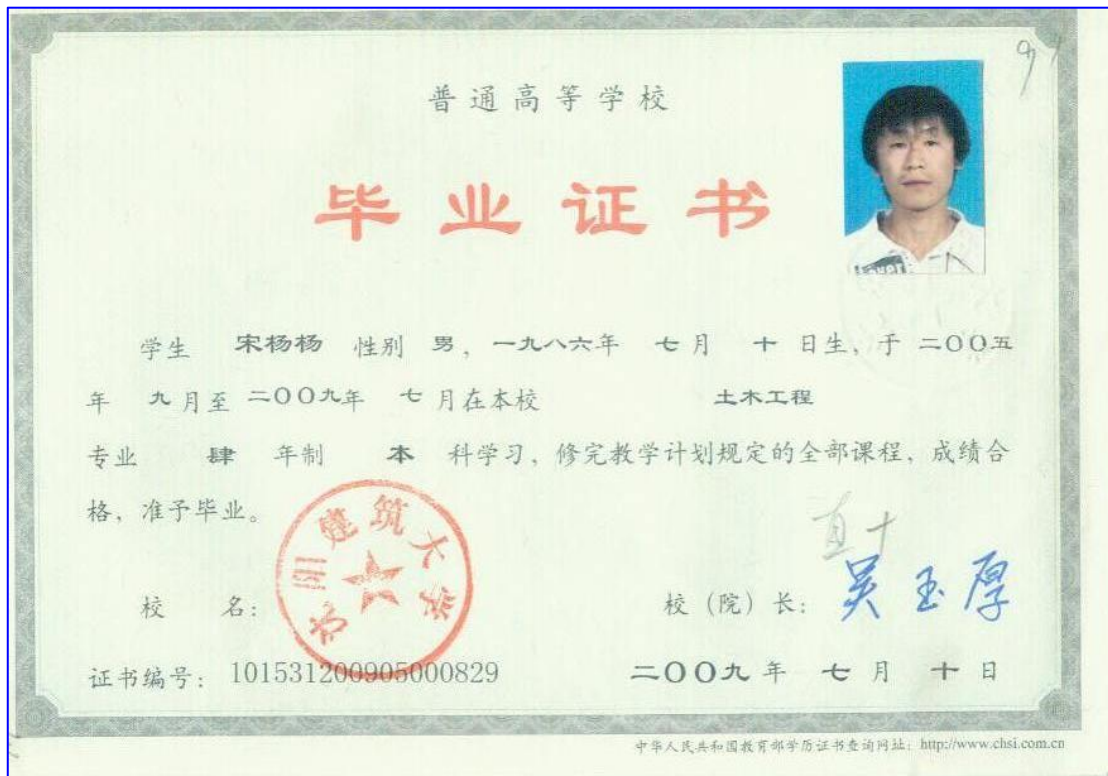 普通高等学校
毕业证书
学生 宋杨杨 性别 男，一九八六年 七月 十日生，于二〇〇五
年 九月至二〇〇九年 七月在本校 土木工程
专业 肆 年制 本 科学习，修完教学计划规定的全部课程，成绩合
格，准予毕业。
沈阳建筑大学
直十
校 名：
校（院）长：吴玉厚
证书编号：101531200905000829
二〇〇九年 七月 十日
中华人民共和国教育部学历证书查询网址：http://www.chsi.com.cn